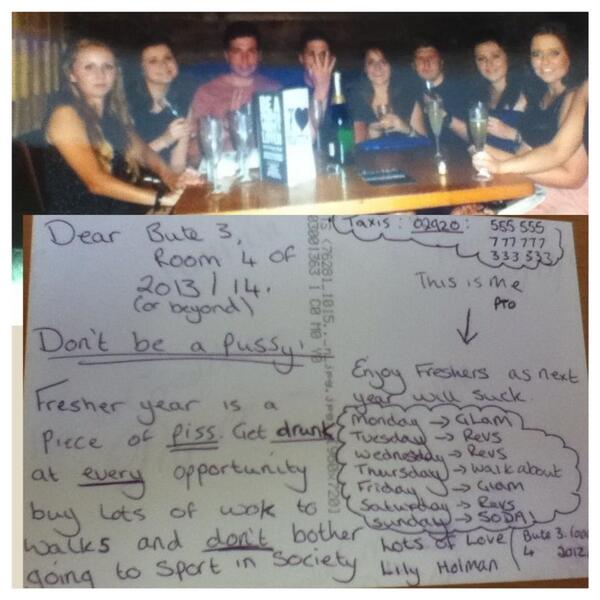 Dear Bute 3,
Room 4 of
2013/14.
(or beyond)
Don't be a pussy!
Fresher year is a
Piece of piss. Get drunk
at every opportunity
buy lots of wok to
walks and don't bother
going to Sport in Society
Taxis: 02920: 555 555
777 777
333 333
This is me
PTO
Enjoy Freshers as next
year will suck.
Monday → GLAM
Tuesday → Revs
Wednesday → Revs
Thursday → Walkabout
Friday → Glam
Saturday → Revs
Sunday → SODA
Lots of Love
Lily Holman
Bute 3.
4 2012